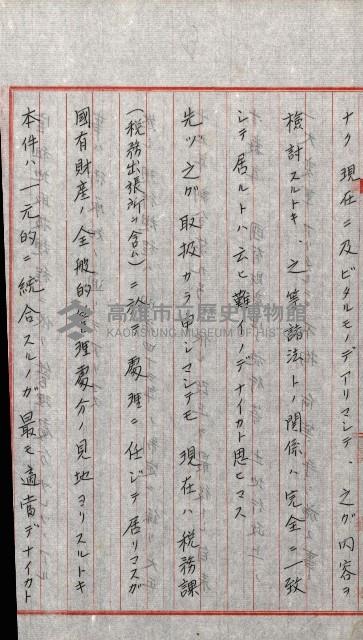 ナク現在ニ及ビタルモノデアリマシテ、之ガ内容ヲ
檢討スルトキ、之等諸法トノ關係ハ完全ニ一致
シテ居ルトハ云ヒ難イノデナイカト思ヒマス
先ヅ之ガ取扱カラ申シマシテモ現在ハ税務課
(税務出張所ヲ含ム)ニ於テ處理ニ任ジテ居リマスガ
國有財産ノ全般的管理處分ノ見地ヨリスルトキ
本件ハ一元的ニ統合スルノガ最モ適當デナイカト
高雄市立歷史博物館
KAOHSIUNG MUSEUM OF HISTORY